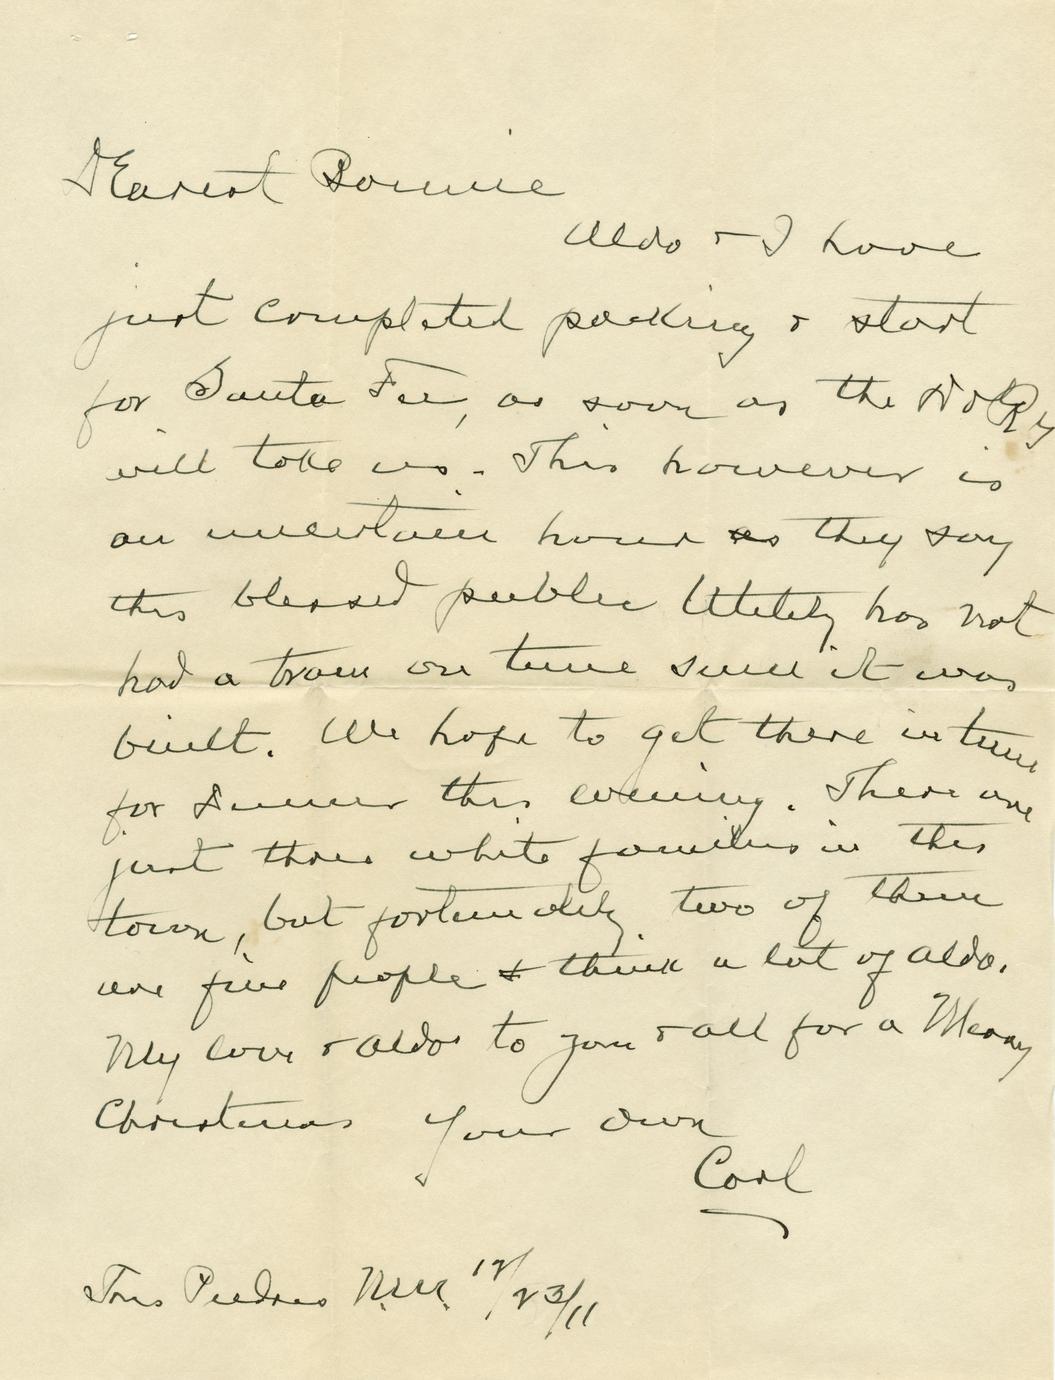 Dearest Bonnie
Aldo & I have
just completed packing & start
for Santa Fee, as soon as the D&RG
will take us. This however is
an uncertain hour as they say
this blessed public Utility has not
had a train on time since it was
built. We hope to get there in time
for dinner this evening. There are
just three white families in this
town, but fortunately two of them
are fine people & think a lot of Aldo.
My love & Aldos to you & all for a Merry
Christmas Your own
Carl
Tres Piedras N.M. 12/23/11